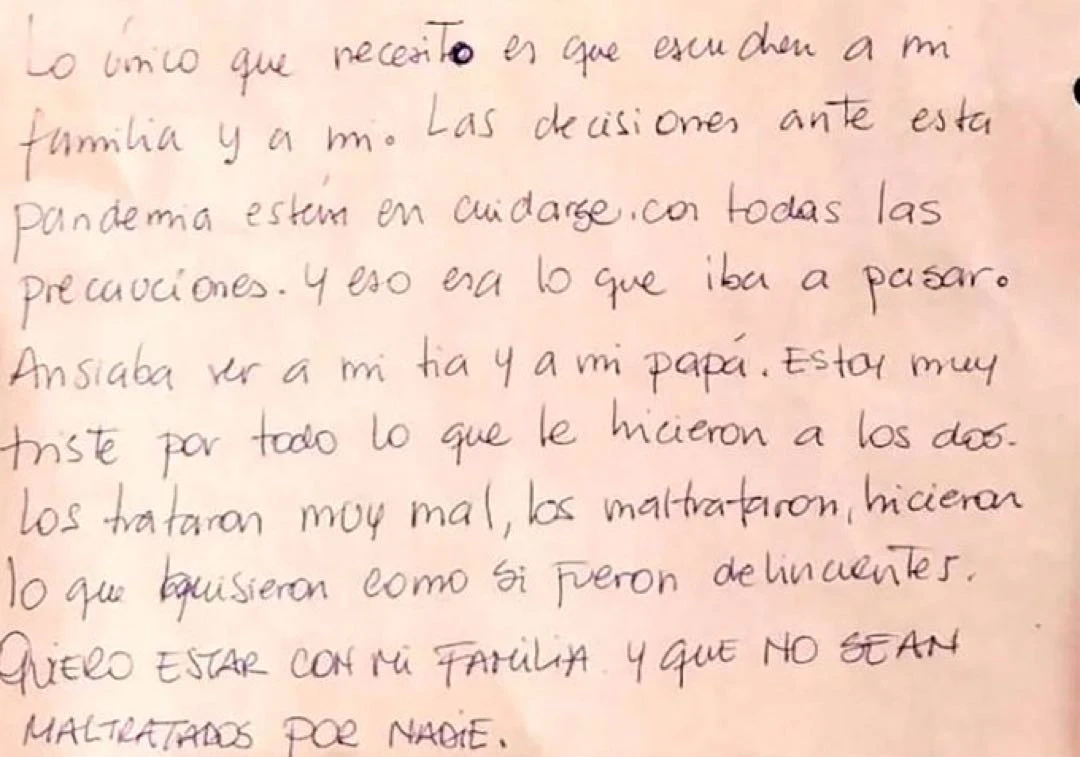 Lo único que necesito es que escuchen a mi
familia y a mi. Las decisiones ante esta
pandemia están en cuidarse. con todas las
precauciones. Y eso era lo que iba a pasar.
Ansiaba ver a mi tia y a mi papá. Estoy muy
triste por todo lo que le hicieron a los dos.
Los trataron muy mal, los maltrataron, hicieron
lo que quisieron como si fueron delincuentes.
QUIERO ESTAR CON MI FAMILIA Y QUE NO SEAN
MALTRATADOS POR NADIE.